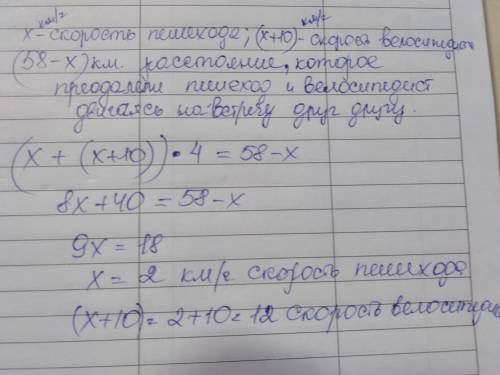 км/г км/г
x - скорость пешехода; (x+10) - скорость велосипедиста
(58-x) км. расстояние, которое
преодалели пешеход и велосипедист
двигаясь на встречу друг другу.
(x + (x+10)) • 4 = 58-x
8x+40 = 58-x
9x = 18
x = 2 км/г скорость пешехода
(x+10) = 2+10 = 12 скорость велосипедиста